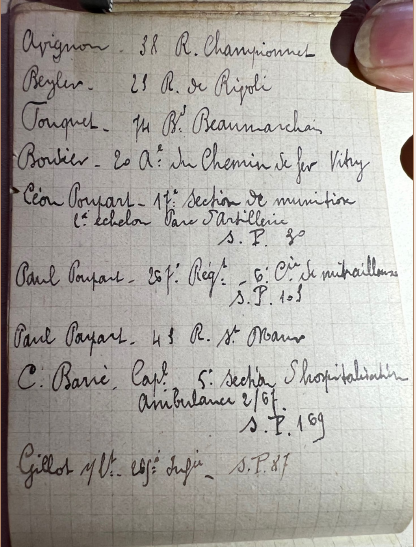 Avignon - 38 R. Championnet
Beyler - 25 R. de Rivoli
Touquet - 74 Bd Beaumarchais
Bordier - 20 Ae. du Chemin de fer Vitry
Léon Poupart - 17e Section de munition
1er échelon Parc d'Artillerie
S. P. 30
Paul Poupart - 267e Régt - 6e Cie de mitrailleuses
S. P. 105
Paul Poupart - 45 R. St Maur
C. Barré - Capl 5e Section d'hospitalisation
ambulance 2/67
S. P. 169
Gillot Lt - S.P. 87